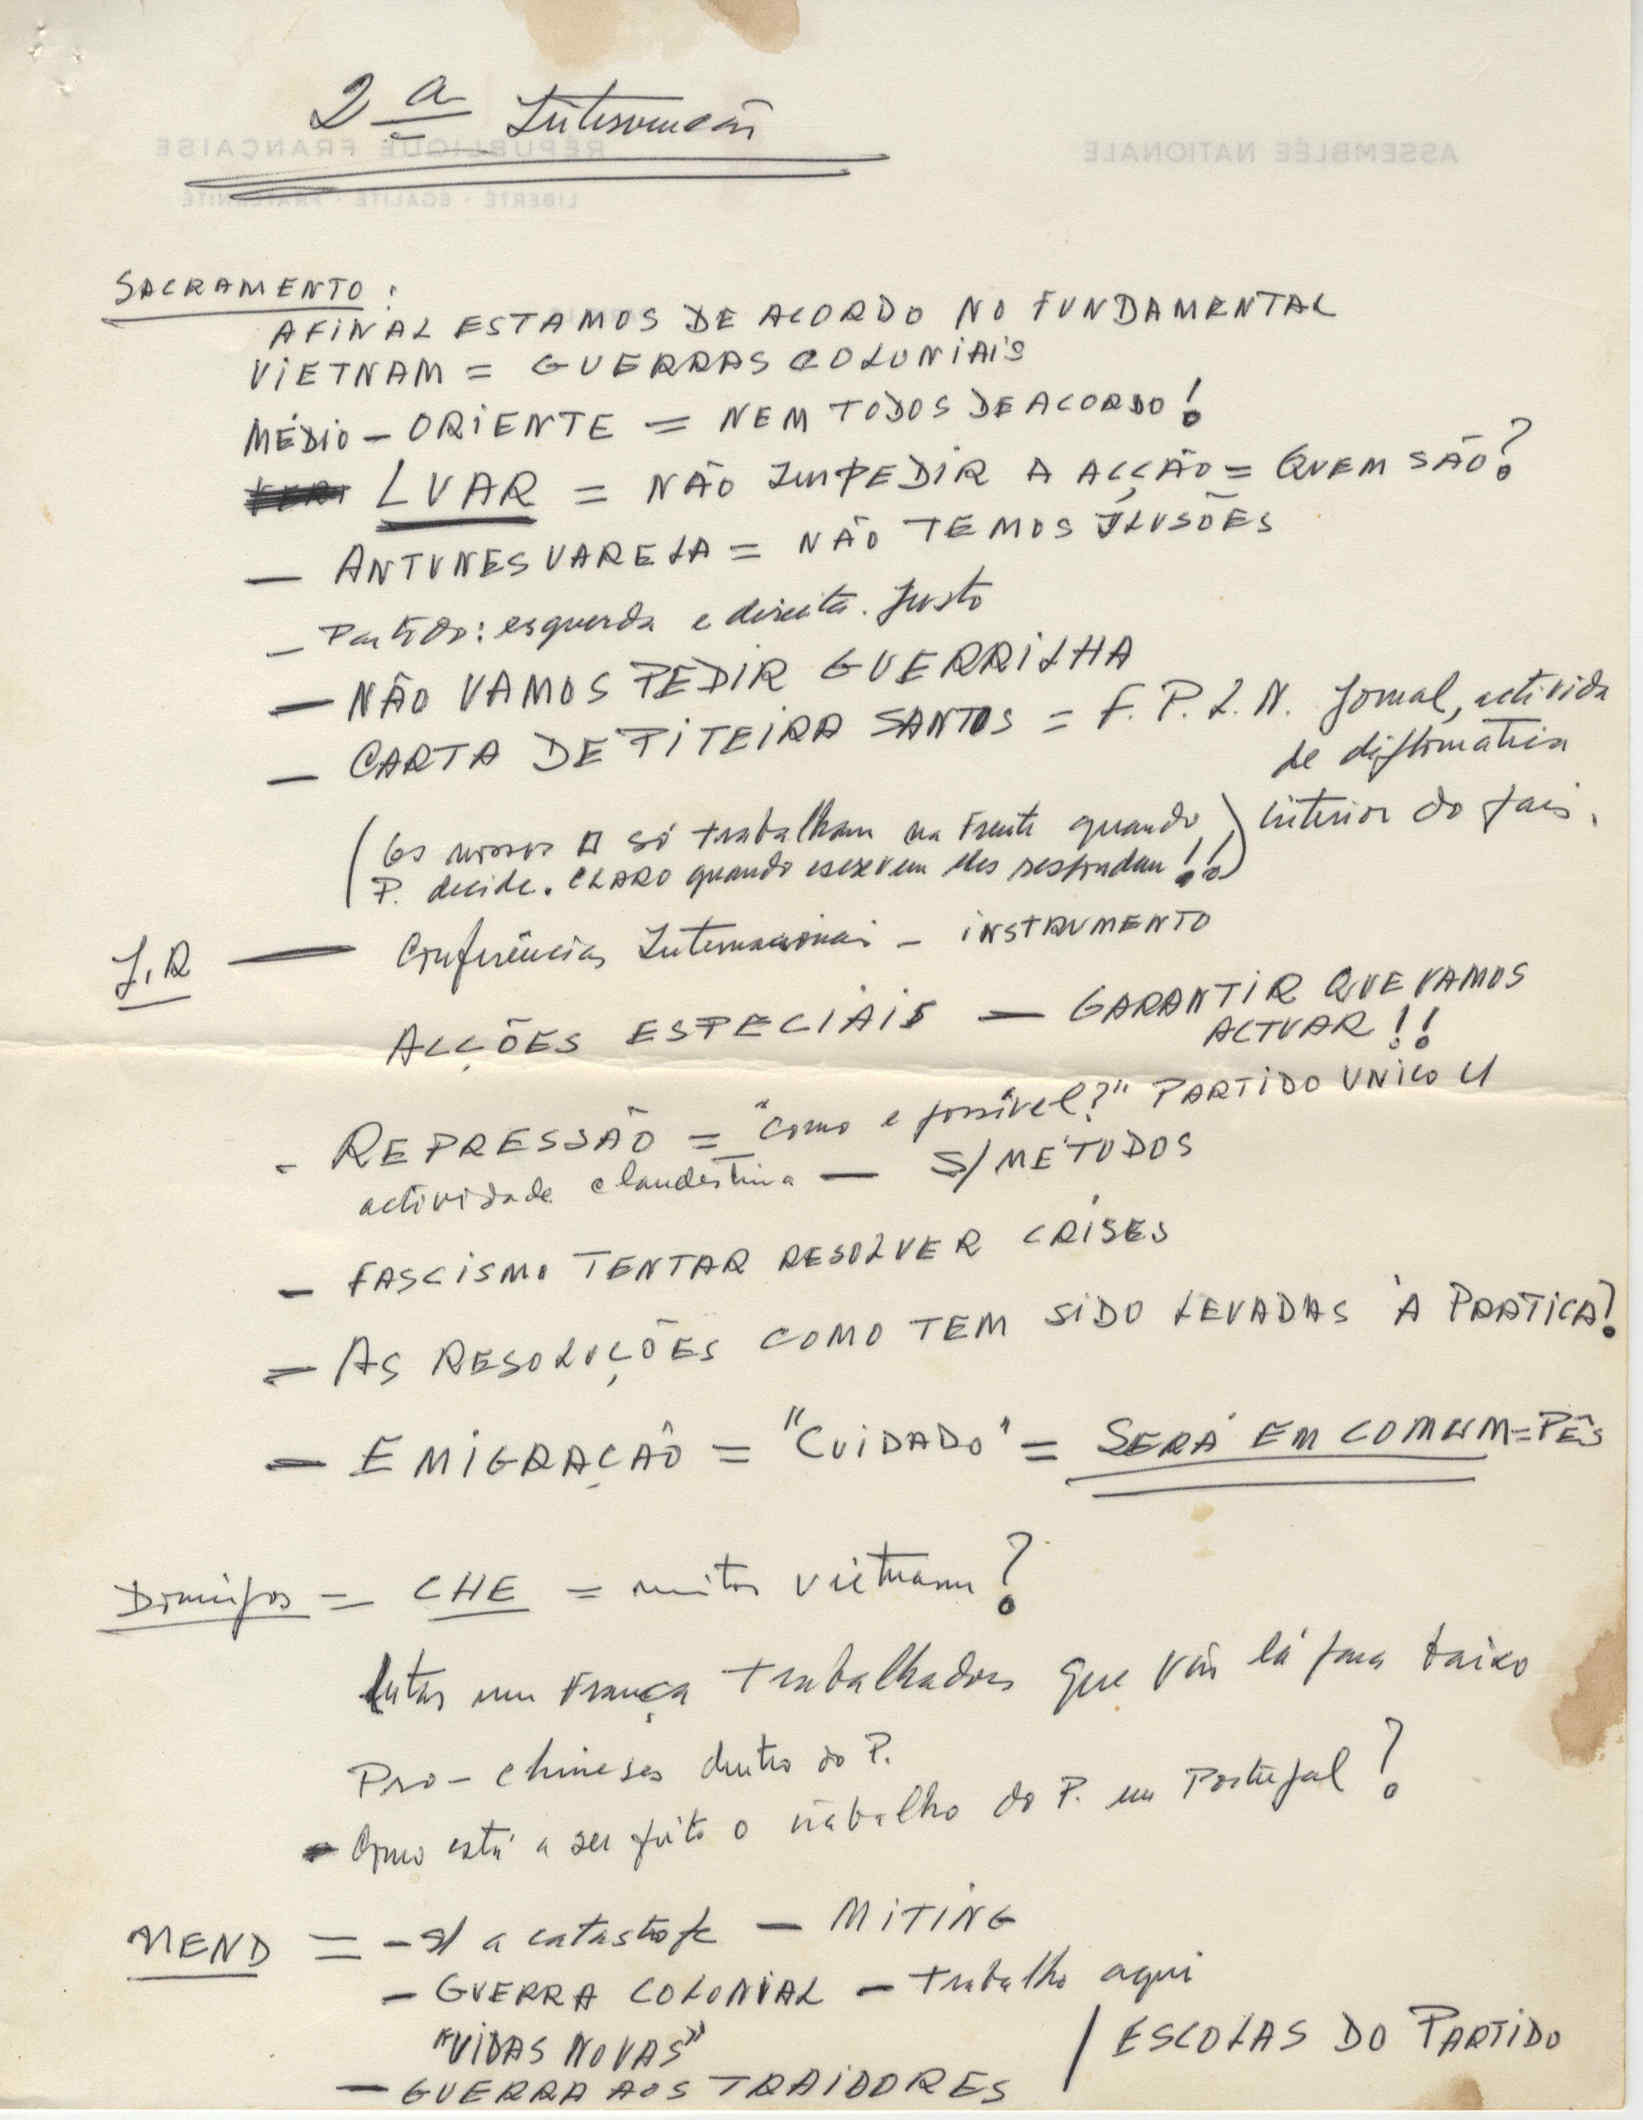 2ª Intervenção
RÉPUBLIQUE FRANÇAISE
LIBERTÉ · ÉGALITÉ · FRATERNITÉ
ASSEMBLÉE NATIONALE
SACRAMENTO:
AFINAL ESTAMOS DE ACORDO NO FUNDAMENTAL
VIETNAM = GUERRAS COLONIAIS
MÉDIO - ORIENTE = NEM TODOS DE ACORDO!
LUAR = NÃO IMPEDIR A ACÇÃO = QUEM SÃO?
— ANTUNES VARELA = NÃO TEMOS ILUSÕES
— Partido: esquerda e direita. Justo
— NÃO VAMOS PEDIR GUERRILHA
— CARTA DE PITEIRA SANTOS = F.P.L.N. Jornal, activida
de diplomática
interior do país.
(Os nossos só trabalham na Frente quando
P. decide. CLARO quando escrevem eles respondem!!)
J.R — Conferências Internacionais - INSTRUMENTO
ACÇÕES ESPECIAIS — GARANTIR QUE VAMOS
ACTUAR!!
- REPRESSÃO = "Como e possível?" PARTIDO UNICO
actividade clandestina — S/ METODOS
- FASCISMO TENTAR RESOLVER CRISES
- AS RESOLUÇÕES COMO TEM SIDO LEVADAS À PRATICA?
- EMIGRAÇÃO = "CUIDADO" = SERÁ EM COMUM = PÊS
Domingos = CHE = muitos Vietnam?
lutas em França trabalhadores que vão lá para baixo
Pro-chineses dentro do P.
- Como está a ser feito o trabalho do P. em Portugal?
MEND = - S/ a catastrofe — MITING
- GUERRA COLONIAL - trabalho aqui
"VIDAS NOVAS"
/ ESCOLAS DO PARTIDO
— GUERRA AOS TRAIDORES